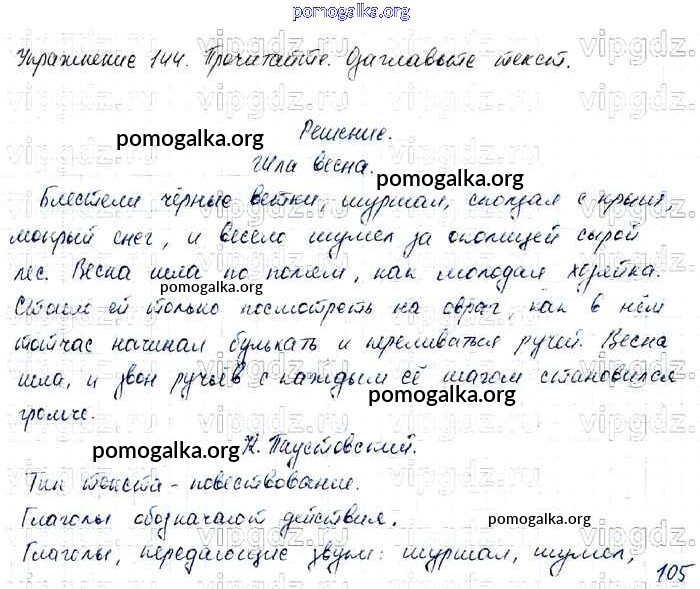 pomogalka.org
Упражнение 144. Прочитайте. Озаглавьте текст.
Решение.
pomogalka.org
Шла весна.
pomogalka.org
Блестели чёрные ветки, шуршал, сползая с крыш,
мокрый снег, и весело шумел за околицей сырой
лес. Весна шла по полям, как молодая хозяйка.
pomogalka.org
Стоило ей только посмотреть на овраг, как в нём
тотчас начинал булькать и переливаться ручей. Весна
шла, и звон ручьёв с каждым её шагом становился
pomogalka.org
громче.
К. Паустовский.
pomogalka.org
Тип текста - повествование.
Глаголы обозначают действия.
pomogalka.org
Глаголы, передающие звуки: шуршал, шумел,
105
vipgdz.ru